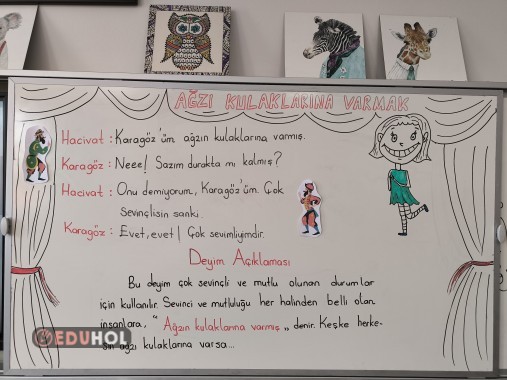 AĞZI KULAKLARINA VARMAK
Hacivat : Karagöz'üm ağzın kulaklarına varmış.
Karagöz : Neee! Sazım durakta mı kalmış?
Hacivat : Onu demiyorum, Karagöz'üm. Çok
Sevinçlisin sanki.
Karagöz : Evet, evet! Çok sevimliyimdir.
Deyim Açıklaması
Bu deyim çok sevinçli ve mutlu olunan durumlar
için kullanılır. Sevinci ve mutluluğu her halinden belli olan
insanlara, "Ağzın kulaklarına varmış" denir. Keşke herke-
sin ağzı kulaklarına varsa...
EDUHOL